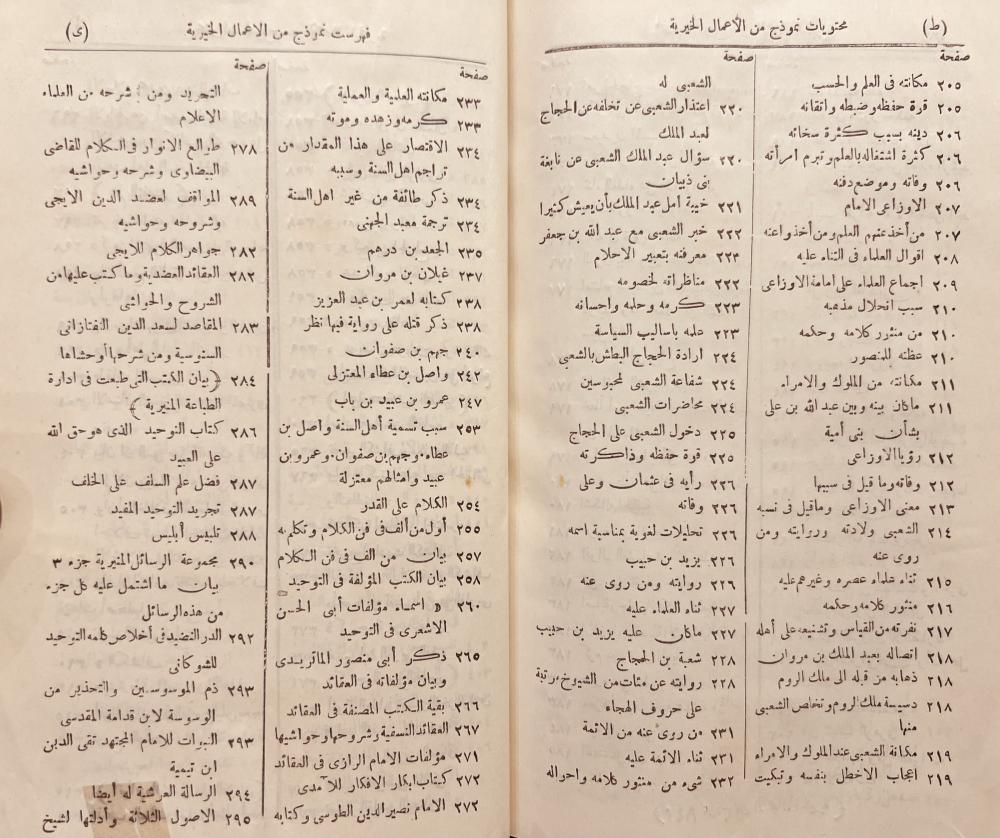 (ط) محتويات نموذج من الأعمال الخيرية
صفحة
٢٠٥ مكانته فى العلم والحسب
٢٠٥ قوة حفظه وضبطه واتقانه
٢٠٦ دينه بسبب كثرة سخائه
٢٠٦ كثرة اشتغاله بالعلم وتبرم امرأته
٢٠٦ وفاته وموضع دفنه
٢٠٧ الاوزاعى الامام
٢٠٧ من أخذ عنهم العلم ومن أخذوا عنه
٢٠٨ اقوال العلماء فى الثناء عليه
٢٠٩ اجماع العلماء على امامة الاوزاعى
٢١٠ سبب انحلال مذهبه
٢١٠ من منثور كلامه وحكمه
٢١٠ عظته للمنصور
٢١١ مكانته من الملوك والامراء
٢١١ ما كان بينه وبين عبد الله بن على
بشأن بنى أمية
٢١٢ رؤيا الاوزاعى
٢١٢ وفاته وما قيل فى سببها
٢١٣ معنى الاوزاعى وما قيل فى نسبه
٢١٤ الشعبى ولادته وروايته ومن
روى عنه
٢١٥ ثناء علماء عصره وغيرهم عليه
٢١٦ منثور كلامه وحكمه
٢١٧ نفرته من القياس وتشنيعه على أهله
٢١٨ اتصاله بعبد الملك بن مروان
٢١٨ ذهابه من قبله الى ملك الروم
٢١٨ دسيسة ملك الروم وتخلص الشعبى
منها
٢١٩ مكانة الشعبى عند الملوك والامراء
٢١٩ اعجاب الاخطل بنفسه وتبكيت
صفحة
الشعبى له
٢٢٠ اعتذار الشعبى عن تخلفه عن الحجاج
لعبد الملك
٢٢٠ سؤال عبد الملك الشعبى عن نابغة
بنى ذبيان
٢٢١ خيبة أمل عبد الملك بأن يعيش كثيرا
٢٢٢ خبر الشعبى مع عبد الله بن جعفر
٢٢٣ معرفته بتعبير الاحلام
٢٢٢ مناظراته لخصومه
٢٢٣ كرمه وحلمه واحسانه
٢٢٣ علمه باساليب السياسة
٢٢٤ ارادة الحجاج البطش بالشعبى
٢٢٤ شفاعة الشعبى لمحبوسين
٢٢٤ محاضرات الشعبى
٢٢٥ دخول الشعبى على الحجاج
٢٢٥ قوة حفظه وذاكرته
٢٢٦ رأيه فى عثمان وعلى
٢٢٦ وفاته
٢٢٦ تحليلات لغوية بمناسبة اسمه
٢٢٦ يزيد بن حبيب
٢٢٦ روايته ومن روى عنه
٢٢٧ ثناء العلماء عليه
٢٢٧ ما كان عليه يزيد بن حبيب
٢٢٨ شعبة بن الحجاج
٢٢٨ روايته عن مئات من الشيوخ مرتبة
على حروف الهجاء
٢٣١ من روى عنه من الائمة
٢٣١ ثناء الائمة عليه
٢٣٢ شىء من منثور كلامه واحواله
فهرست نموذج من الاعمال الخيرية (ى)
صفحة
٢٣٣ مكانته العلمية والعملية
٢٣٣ كرمه وزهده وموته
٢٣٤ الاقتصار على هذا المقدار من
تراجم اهل السنة وسببه
٢٣٤ ذكر طائفة من غير اهل السنة
٢٣٤ ترجمة معبد الجهنى
٢٣٥ الجعد بن درهم
٢٣٧ غيلان بن مروان
٢٣٨ كتابه لعمر بن عبد العزيز
٢٣٨ ذكر قتله على رواية فيها نظر
٢٤٠ جهم بن صفوان
٢٤٢ واصل بن عطاء المعتزلى
٢٤٧ عمرو بن عبيد بن باب
٢٥٣ سبب تسمية أهل السنة واصل بن
عطاء وجهم بن صفوان وعمرو بن
عبيد وامثالهم معتزلة
٢٥٤ الكلام على القدر
٢٥٥ أول من ألف فى فن الكلام وتكلم به
٢٥٧ بيان من الف فى فن الكلام
٢٥٨ بيان الكتب المؤلفة فى التوحيد
٢٦٠ « اسماء مؤلفات أبى الحسن
الاشعرى فى التوحيد
٢٦٥ ذكر أبى منصور الماتريدى
وبيان مؤلفاته فى العقائد
٢٦٦ بقية الكتب المصنفة فى العقائد
٢٦٧ العقائد النسفية وشروحها وحواشيها
٢٧١ مؤلفات الامام الرازى فى العقائد
٢٧٢ كتاب ابكار الافكار للآمدى
٢٧٢ الامام نصير الدين الطوسى وكتابه
صفحة
التجريد ومن شرحه من العلماء
الاعلام
٢٧٨ طوالع الانوار فى الكلام للقاضى
البيضاوى وشرحه وحواشيه
٢٨٩ المواقف لعضد الدين الايجى
وشروحه وحواشيه
٢٨٢ جواهر الكلام للايجى
٢٨٢ العقائد العضدية وما كتب عليها من
الشروح والحواشى
٢٨٣ المقاصد لسعد الدين التفتازانى
السنوسية ومن شرحها أو حشاها
٢٨٤ ﴿بيان الكتب التى طبعت فى ادارة
الطباعة المنيرية﴾
٢٨٦ كتاب التوحيد الذى هو حق الله
على العبيد
٢٨٧ فضل علم السلف على الخلف
٢٨٧ تجريد التوحيد المفيد
٢٨٨ تلبيس أبليس
٢٩٠ مجموعة الرسائل المنيرية جزء ٣
بيان ما اشتمل عليه كل جزء
من هذه الرسائل
٢٩٢ الدر النضيد فى أخلاص كلمة التوحيد
للشوكانى
٢٩٣ ذم الموسوسين والتحذير من
الوسوسة لابن قدامة المقدسى
٢٩٣ النبوات للامام المجتهد تقى الدين
ابن تيمية
٢٩٤ الرسالة العرشية له أيضا
٢٩٥ الاصول الثلاثة وأدلتها لشيخ